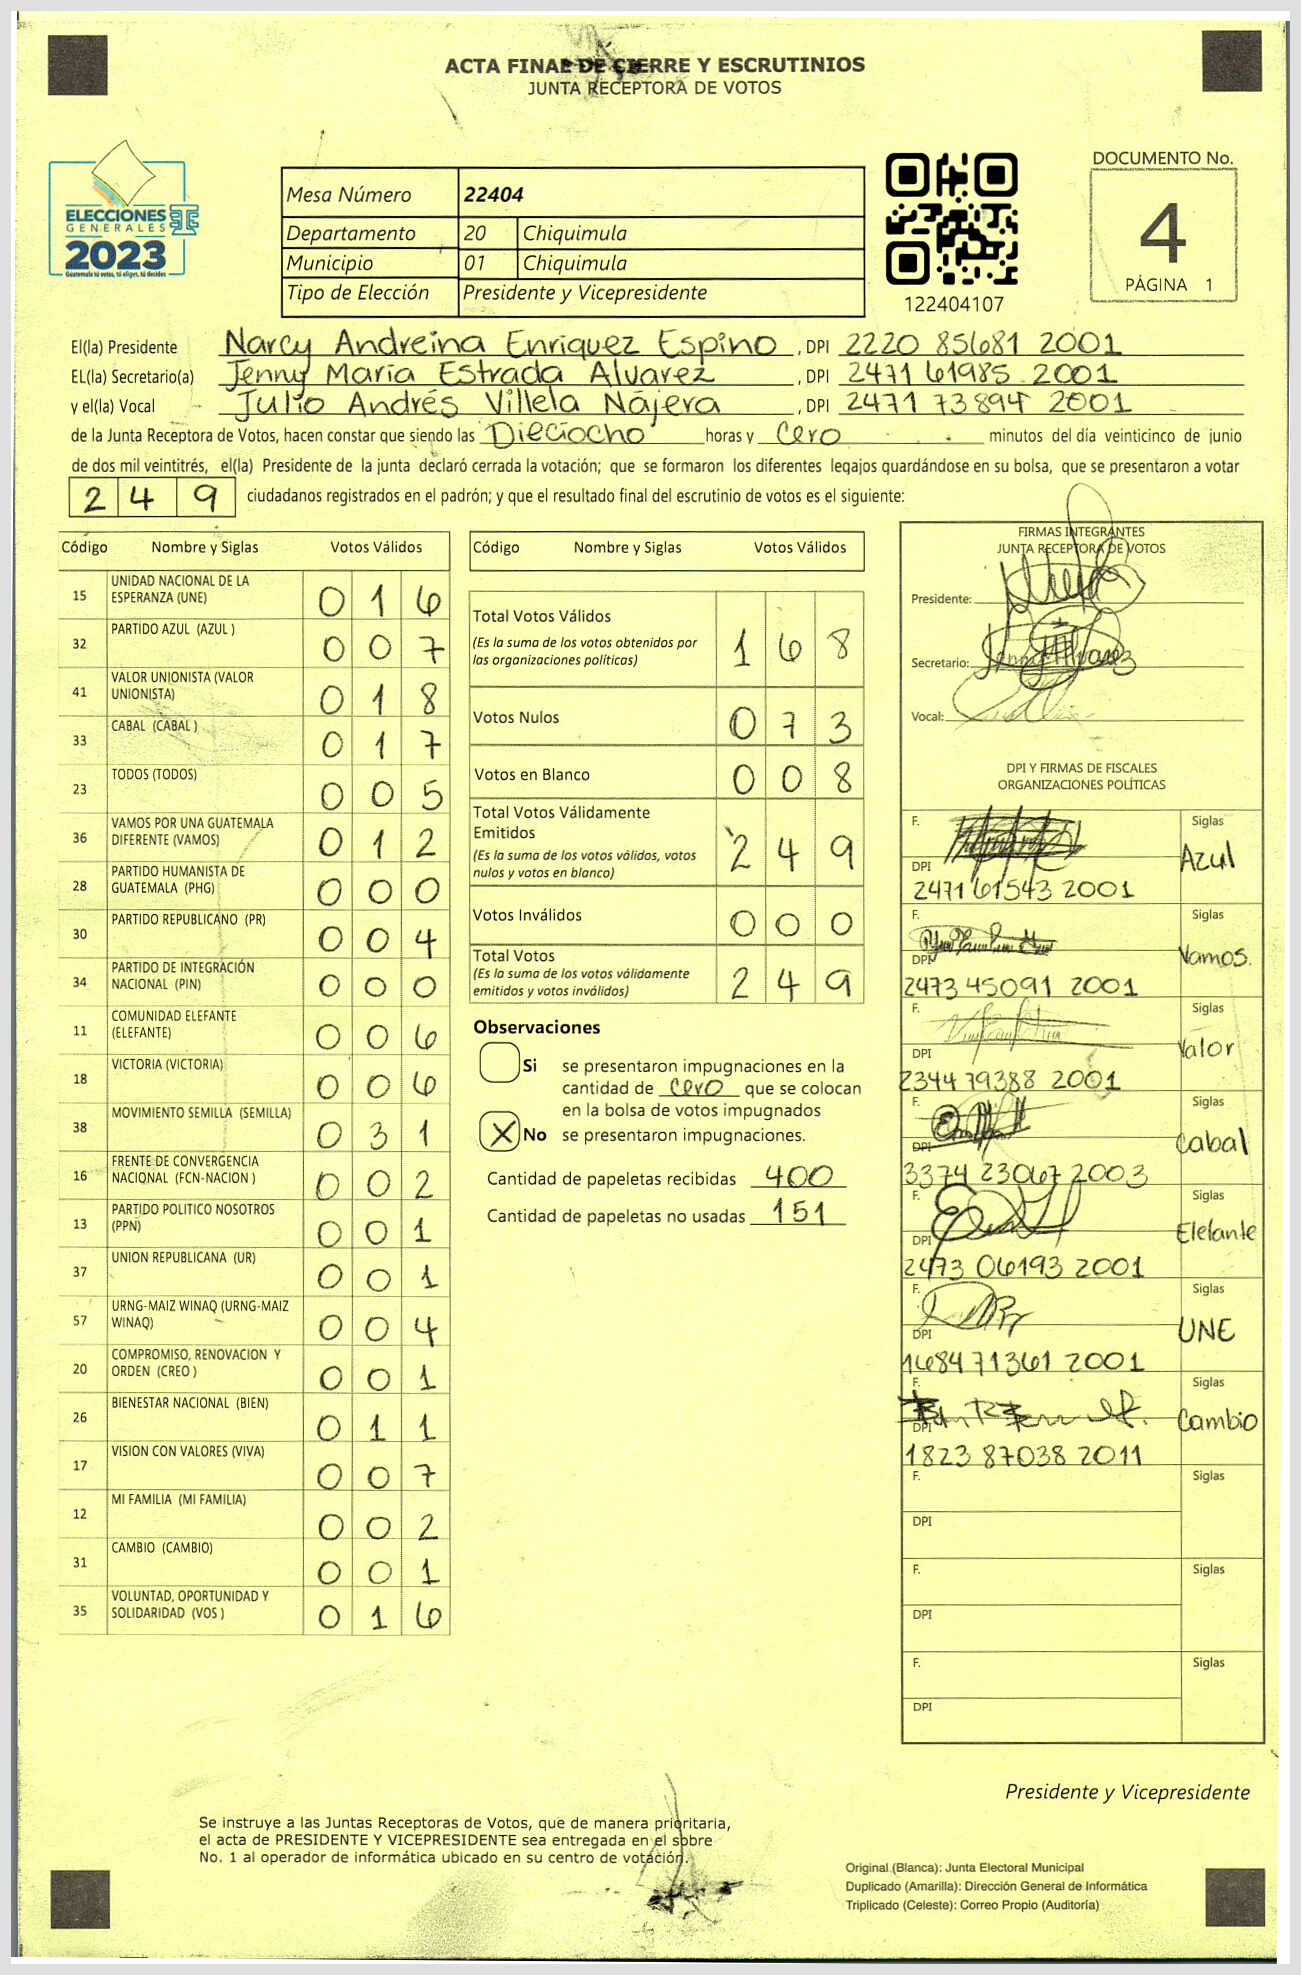 ACTA FINAL DE CIERRE Y ESCRUTINIOS
JUNTA RECEPTORA DE VOTOS
ELECCIONES
GENERALES
2023
Guatemala tú votas, tú eliges, tú decides
Mesa Número 22404
Departamento 20 Chiquimula
Municipio 01 Chiquimula
Tipo de Elección Presidente y Vicepresidente
122404107
DOCUMENTO No.
4
PÁGINA 1
El(la) Presidente Narcy Andreina Enriquez Espino, DPI 2220 85681 2001
EL(la) Secretario(a) Jenny María Estrada Alvarez, DPI 2471 61985 2001
y el(la) Vocal Julio Andrés Villela Nájera, DPI 2471 73894 2001
de la Junta Receptora de Votos, hacen constar que siendo las Dieciocho horas y Cero minutos del día veinticinco de junio
de dos mil veintitrés, el(la) Presidente de la junta declaró cerrada la votación; que se formaron los diferentes legajos guardándose en su bolsa, que se presentaron a votar
249 ciudadanos registrados en el padrón; y que el resultado final del escrutinio de votos es el siguiente:
Código Nombre y Siglas Votos Válidos
15 UNIDAD NACIONAL DE LA ESPERANZA (UNE) 016
32 PARTIDO AZUL (AZUL ) 007
41 VALOR UNIONISTA (VALOR UNIONISTA) 018
33 CABAL (CABAL ) 017
23 TODOS (TODOS) 005
36 VAMOS POR UNA GUATEMALA DIFERENTE (VAMOS) 012
28 PARTIDO HUMANISTA DE GUATEMALA (PHG) 000
30 PARTIDO REPUBLICANO (PR) 004
34 PARTIDO DE INTEGRACIÓN NACIONAL (PIN) 000
11 COMUNIDAD ELEFANTE (ELEFANTE) 006
18 VICTORIA (VICTORIA) 006
38 MOVIMIENTO SEMILLA (SEMILLA) 031
16 FRENTE DE CONVERGENCIA NACIONAL (FCN-NACION ) 002
13 PARTIDO POLITICO NOSOTROS (PPN) 001
37 UNION REPUBLICANA (UR) 001
57 URNG-MAIZ WINAQ (URNG-MAIZ WINAQ) 004
20 COMPROMISO, RENOVACION Y ORDEN (CREO ) 001
26 BIENESTAR NACIONAL (BIEN) 011
17 VISION CON VALORES (VIVA) 007
12 MI FAMILIA (MI FAMILIA) 002
31 CAMBIO (CAMBIO) 001
35 VOLUNTAD, OPORTUNIDAD Y SOLIDARIDAD (VOS ) 016
Código Nombre y Siglas Votos Válidos
Total Votos Válidos 168
(Es la suma de los votos obtenidos por
las organizaciones políticas)
Votos Nulos 073
Votos en Blanco 008
Total Votos Válidamente
Emitidos 249
(Es la suma de los votos válidos, votos
nulos y votos en blanco)
Votos Inválidos 000
Total Votos 249
(Es la suma de los votos válidamente
emitidos y votos inválidos)
Observaciones
Si se presentaron impugnaciones en la
cantidad de cero que se colocan
en la bolsa de votos impugnados
X No se presentaron impugnaciones.
Cantidad de papeletas recibidas 400
Cantidad de papeletas no usadas 151
FIRMAS INTEGRANTES
JUNTA RECEPTORA DE VOTOS
Presidente:
Secretario:
Vocal:
DPI Y FIRMAS DE FISCALES
ORGANIZACIONES POLÍTICAS
F. Siglas
DPI Azul
2471 61543 2001
F. Siglas
DPI Vamos.
2473 45091 2001
F. Siglas
DPI Valor
2344 79388 2001
F. Siglas
DPI Cabal
3374 23067 2003
F. Siglas
DPI Elefante
2473 06193 2001
F. Siglas
DPI UNE
1684 71361 2001
F. Siglas
DPI Cambio
1823 87038 2011
F. Siglas
DPI
F. Siglas
DPI
F. Siglas
DPI
Presidente y Vicepresidente
Se instruye a las Juntas Receptoras de Votos, que de manera prioritaria,
el acta de PRESIDENTE Y VICEPRESIDENTE sea entregada en el sobre
No. 1 al operador de informática ubicado en su centro de votación.
Original (Blanca): Junta Electoral Municipal
Duplicado (Amarilla): Dirección General de Informática
Triplicado (Celeste): Correo Propio (Auditoría)